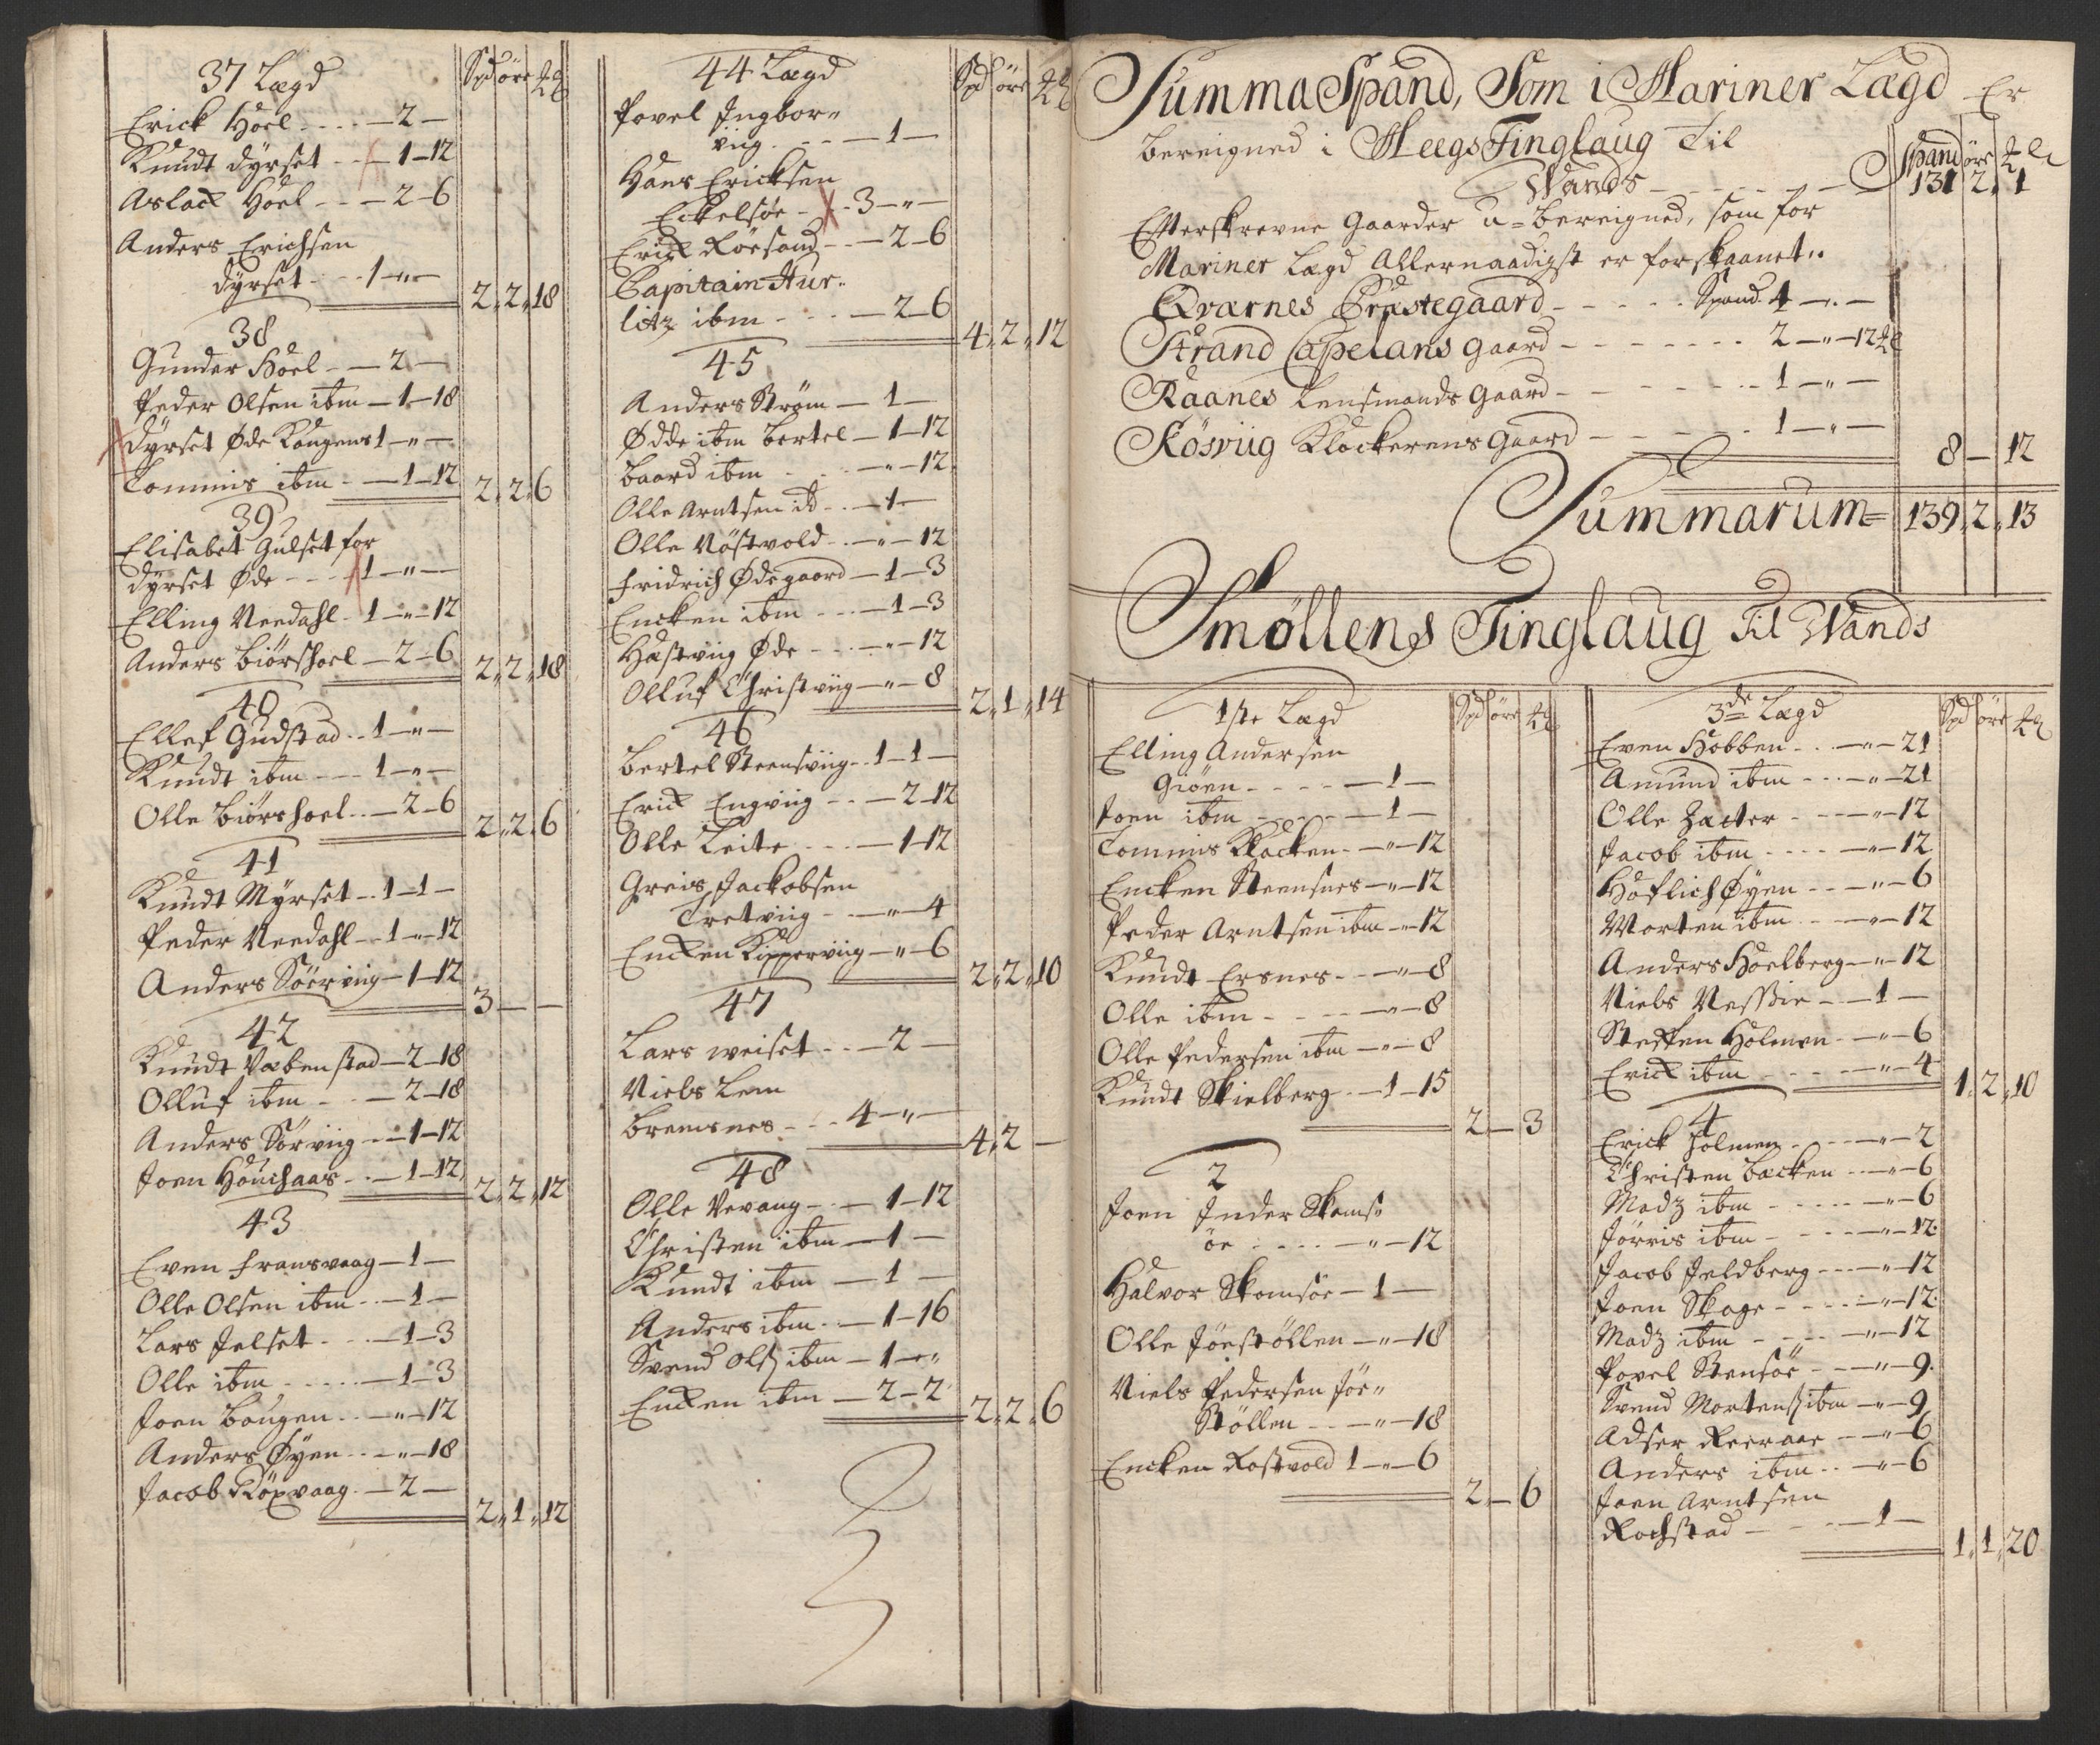 37 Lægd Spd öre ℔
Erick Höel - - - - 2 -
Knudt dyrset - - 1 - 12
Aslack Höel - - - 2 - 6
Anders Erichsen
dyrset - - - 1 - „ - 2 „ 2 „ 18
38
Gunder Höel - - 2 -
Peder Olsen ibm - 1 - 18
dyrset Øde Kongens 1 - „ -
Tommis ibm - - 1 - 12 2 „ 2 „ 6
39
Elisabet Gulset for
dyrset Øde - - - 1 - „ -
Elling Needahl - 1 - „ - 12
Anders Biörshoel - 2 - 6 2 „ 2 „ 18
40
Ellef Gudstad - - 1 - „ -
Knudt ibm - - - 1 - „ -
Olle Biörshoel - - 2 - 6 2 „ 2 „ 6
41
Knudt Myrset - - 1 - 1 -
Peder Needahl - - 1 - „ - 12
Anders Sörviig - 1 - 12 3 - -
42
Knudt Væbenstad - 2 - 18
Olluf ibm - - - 2 - 18
Anders Sörviig - - 1 - 12
Joen Houchaas - - 1 - 12 2 „ 2 „ 12
43
Even Fransvaag - 1 -
Olle Olsen ibm - - 1 -
Lars Jelset - - - 1 - 3
Olle ibm - - - - 1 - 3
Joen Bougen - - - „ - 12
Anders Øyen - - - „ - 18
Jacob Röxvaag - 2 - 2 „ 1 „ 12
44 Lægd Spd öre ℔
Povel Ingbor„
viig - - - - 1 -
Hans Ericksen
Eckelsöe - - - 3 - „ -
Erick Röesand - - 2 - 6
Capitain Hur„
litz ibm - - - 2 - 6 4 „ 2 „ 12
45
Anders Ström - 1 -
Ødde ibm Bertel - 1 - 12
Baard ibm - - - „ - 12
Olle Arntsen id - - 1 -
Olle Nöstvold - - „ - 12
Fridrich Ødegaard - 1 - 3
Encken ibm - - - 1 - 3
Hæstviig Øde - - - „ - 12
Olluf Christviig - „ - 8 2 „ 1 „ 14
46
Bertel Steensviig - - 1 - 1 -
Erick Engviig - - - 2 - 12
Olle Leite - - - - 1 - 12
Greis Jackobsen
Tretviig - - - „ - 4
Encken Kipperviig - „ - 6 2 „ 2 „ 10
47
Lars weiset - - - 2 -
Niels Lem
Bremsnes - - - 4 - „ - 4 „ 2 -
48
Olle Vevang - - 1 - 12
Christen ibm - 1 -
Knudt ibm - 1 -
Anders ibm - - 1 - 16
Svend Ols. ibm - 1 - „
Encken ibm - 2 - 2 2 „ 2 „ 6
Summa Spand, Som i Mariner Lægd Er
bereigned i Neegs Tinglaug Til
Wands - - - - - - Spand öre ℔
131 2 „ 1
Efterskrevne Gaarder u-bereigned, som for
Mariner Lægd Allernaadigst er forskaanet„
Qværnes Præstegaard - - - - - Spand 4 - „ -
Strand Capelans Gaard - - - - - - 2 - „ - 12 ℔
Raanes Lensmands Gaard - - - - - 1 - „ -
Rösviig Klockerens Gaard - - - - - 1 - „ - 8 - 12
Summarum = 139 „ 2 „ 13
Smöllens Tinglaug Til Wands
1ste Lægd Spd öre ℔
Elling Andersen
Giöen - - - - 1 -
Joen ibm - - - - 1 -
Tommis Klacken - - „ - 12
Encken Steensnes - „ - 12
Peder Arntsen ibm - „ - 12
Knudt Ersnes - - - „ - 8
Olle ibm - - - - „ - 8
Olle Pedersen ibm - „ - 8
Knudt Skielberg - - 1 - 15 2 - 3
2
Joen Inder Skoms„
öe - - - - - „ - 12
Halvor Skomsöe - 1 -
Olle Jöestöllen - „ - 18
Niels Pedersen Jöe„
Stöllen - - - „ - 18
Encken Rostvold 1 - „ - 6 2 - 6
3de Lægd Spd öre ℔
Even Hobben - - - „ - 21
Amund ibm - - - „ - 21
Olle Zæter - - - „ - 12
Jacob ibm - - - - „ - 12
Höflich Øyen - - - „ - 6
Morten ibm - - - „ - 12
Anders Hoelberg - „ - 12
Niels Nessie - - - 1 -
Steffen Holmen - - „ - 6
Erick ibm - - - - „ - 4 1 „ 2 „ 10
4
Erick Holmen - - - „ - 2
Christen Backen - - „ - 6
Madz ibm - - - - „ - 6
Jörris ibm - - - „ - 12
Jacob Jeldberg - - - „ - 12
Joen Skage - - - - „ - 12
Madz ibm - - - - „ - 12
Povel Stensöe - - - „ - 9
Svend Mortens. ibm - „ - 9
Adser Reeraae - - „ - 6
Anders ibm - - - „ - 6
Joen Arntsen
Rochstad - - - - 1 - 1 „ 1 „ 20